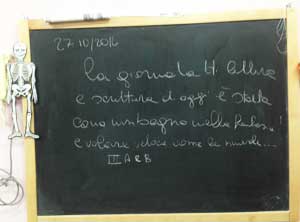 27/10/2016
La giornata di lettura
e scrittura d'oggi è stata
come un bagno nella
e volare veloce come le nuvole....
III A e B